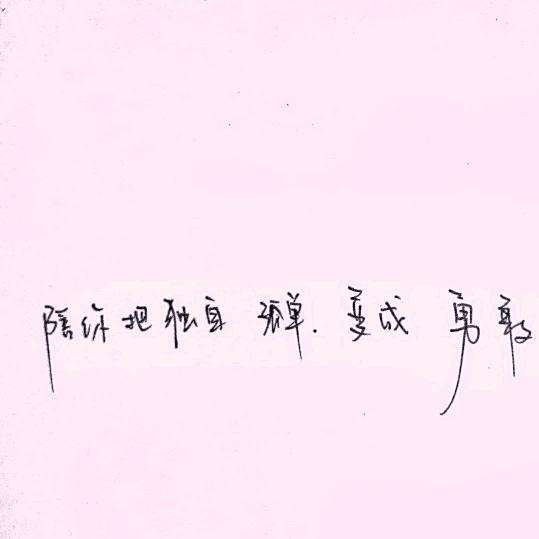 陪你把独自孤单.变成勇敢